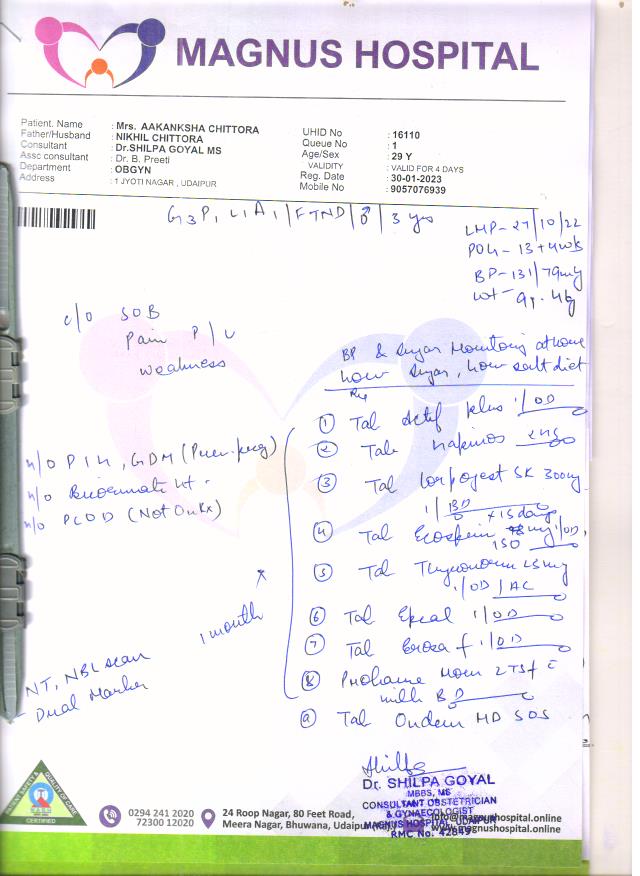 MAGNUS HOSPITAL
Patient. Name : Mrs. AAKANKSHA CHITTORA
Father/Husband : NIKHIL CHITTORA
Consultant : Dr.SHILPA GOYAL MS
Assc consultant : Dr. B. Preeti
Department : OBGYN
Address : 1 JYOTI NAGAR , UDAIPUR
UHID No : 16110
Queue No : 1
Age/Sex : 29 Y
VALIDITY : VALID FOR 4 DAYS
Reg. Date : 30-01-2023
Mobile No : 9057076939
G3P1L1A1/FTND/♂/3 yrs
LMP-27/10/22
POG-13+4wk
BP-131/79
wt-
c/o SOB
Pain P/
weakness
BP & sugar Monitoring at home
low sugar, low salt diet
Rx
① Tab Actif plus 1/OD
② Tab
③ Tab SR 300mg
1/BD x 15 days
④ Tab Ecosprin 150 mg/OD
⑤ Tab Thyronorm 25mg
1/OD/AC
⑥ Tab 1/OD
⑦ Tab f 1/OD
⑧ Mom 2TSF c
milk BD
⑨ Tab Ondem MD SOS
h/o PIH, GDM (Prev. preg)
h/o
h/o PCOD (Not on Rx)
x 1 month
NT, NB scan
Dual Marker
Shilpa
Dr. SHILPA GOYAL
MBBS, MS
CONSULTANT OBSTETRICIAN
& GYNAECOLOGIST
MAGNUS HOSPITAL, UDAIPUR
RMC No. 42849
CERTIFIED
0294 241 2020
72300 12020
24 Roop Nagar, 80 Feet Road,
Meera Nagar, Bhuwana, Udaipur
info@magnushospital.online
www.magnushospital.online